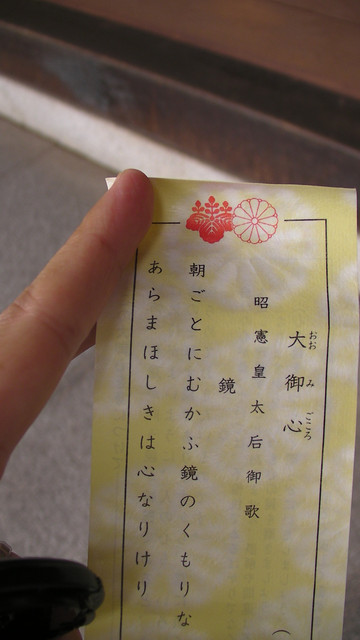 大御心
おおみごころ
昭憲皇太后御歌
鏡
朝ごとにむかふ鏡のくもりな
あらまほしきは心なりけり